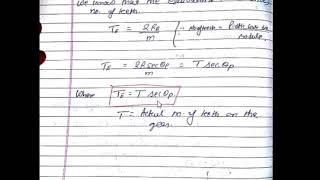 we know that the
no. of teeth.
T_E = 2R_E / m
T_E = 2R secθ_P / m = T secθ_P
Where T_E = T secθ_P
T = Actual no. of teeth on the
gear.